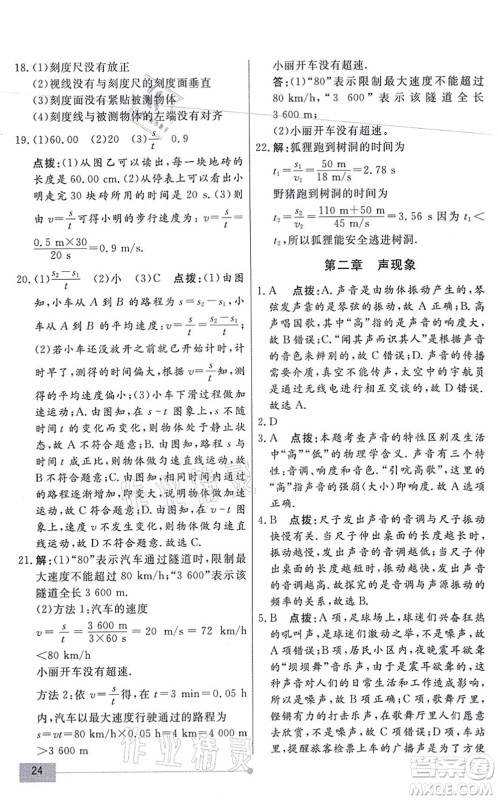 18. (1)刻度尺没有放正
(2)视线没有与刻度尺的刻度面垂直
(3)刻度面没有紧贴被测物体
(4)刻度线与被测物体的左端没有对齐
19. (1)60.00 (2)20 (3)s/t 0.9
点拨：(1)从图乙可以读出一块地砖的
长度是 60.00 cm。(2)从停表上可以看出小
明走完 30 块砖所用的时间是 20 s。(3)则
由 v=s/t 可求得小明的步行速度 v=s/t=
0.5 m×30/20 s=0.9 m/s。
20. (1)(s₂−s₁)/t (2)小 (3)A 点拨：(1)如
图，小车从 A 到 B 的路程为 s₂−s₁，则小
车从 A 到 B 的平均速度 v=s/t=(s₂−s₁)/t。
(2)若小车还没放开之前就已开始计时，计
时早了，测得的时间偏大，由 v=s/t 可知，测
得的平均速度偏小；(3)小车下滑过程做加
速运动；A. 由图知，在 s-t 图象上，s 不随
时间 t 的变化而变化，则物体处于静止状
态，故 A 不符合题意；B. 由图知，s 与 t 成
正比，则物体做匀速直线运动，故 B 不符合
题意；C. 由图知，在相同的时间内物体通过
的路程逐渐增大，说明物体做加速运动，故
C 符合题意；D. 由图知，在 v-t 图象中，速
度 v 不发生变化，则物体做匀速直线运动，
故 D 不符合题意。
21. 解：(1)“80”表示汽车通过隧道时，限制最
大速度不能超过 80 km/h；“3 600”表示该
隧道全长 3 600 m。
(2)方法 1：汽车的速度
v=s/t=3 600 m/3×60 s=20 m/s=72 km/h
<80 km/h
小丽开车没有超速。
方法 2：最大速度在 t=3 min=0.05 h
内，汽车以最大速度行驶通过的路程为
s=vt=80 km/h×0.05 h=4 km=4 000 m
>3 600 m
24
小丽开车没有超速。
答：(1)“80”表示限制最大速度不能超过
80 km/h，“3 600”表示该隧道全长
3 600 m；
(2)小丽开车没有超速。
22. 解：狐狸跑到树洞的时间为
t₁=s₁/v₁=50 m/18 m/s=2.78 s
野猪跑到树洞的时间为
t₂=s₂/v₂=110 m+50 m/45 m/s=3.56 s 因为 t₁<
t₂，所以狐狸能安全逃进树洞。
第二章 声现象
1. A 点拨：声音是由物体振动产生的，琴
弦发声是琴弦的振动，故 A 正确；B. 高
声唱国歌，其中“高”指的是声音的响度大，
故 B 错误；C. “闻其声而识其人”是根据声
音的音色来辨别的，故 C 错误；D. 声音的
传播需要介质，真空不能传声，太空中宇航员是
通过无线电交流的，故 D 错误。故
选 A。
2. D
3. A 点拨：本题考查声音的特性区别及生活
中“高”、“低”的物理学含义。声音的高低
是声音的音调特性，“引吭高歌”的“高”指
的是声音的强弱(大小)即响度。
4. B 点拨：尺子发出声音的音调与尺子振动
快慢有关。当尺子伸出桌面的长度越长时
振动越慢，发出声音的音调越低；尺子伸出
越短，振动越快，发出声音的音调越高；故
该实验探究的是声音的音调与声源振动的
频率的关系。
5. B 点拨：A 项，足球场上，球迷们兴奋狂
热的吼叫声，反映了球迷们激动的心情，故
A 项错误；B 项，居民小区内，夜晚震耳欲聋
的“坝坝舞”音乐声，由于震耳欲聋的声音
会影响周围居民的正常休息，影响人们的生
活和工作造成影响，所以是噪声，故 B 项
正确；C 项，歌舞厅里，歌手演唱的声音，没有
影响他人，所以不是噪声，故 C 项错误；D 项，